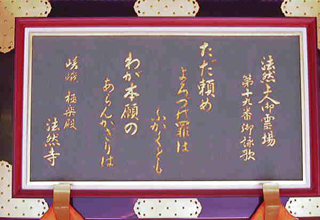 法然上人御霊場
第十九番御詠歌
ただ頼め
よろつの罪は
ふかくとも
わが本願の
あらんかぎりは
嵯峨 極楽殿
法然寺